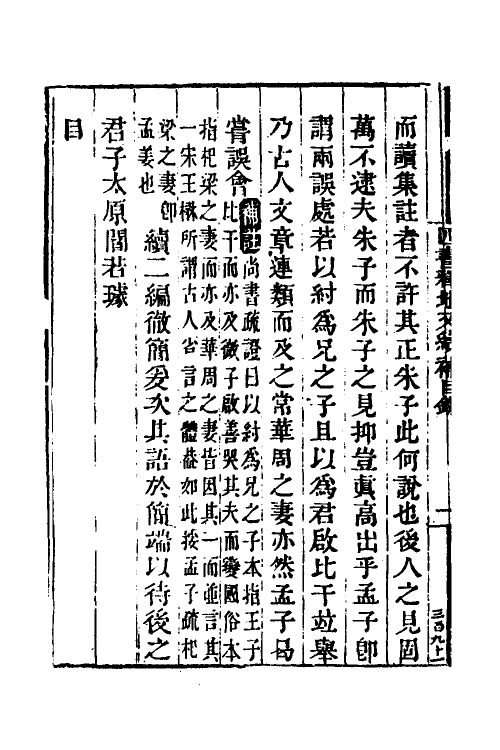 而讀集註者不許其正朱子此何說也後人之見固
萬不逮夫朱子而朱子之見抑豈眞高出乎孟子卽
謂兩誤處若以紂爲兄之子且以爲君啟比干竝舉
乃古人文章連類而及之常華周之妻亦然孟子曷
嘗誤會補註尚書疏證曰以紂爲兄之子本指王子
比干而亦及微子啟善哭其夫而變國俗本
指杞梁之妻而亦及華周之妻皆因其一而竝言其
一宋王楙所謂古人省言之體葢如此按孟子疏杞
梁之妻卽
孟姜也
續二編徹簡爰次其語於簡端以待後之
君子太原閻若璩
目
四書釋地又續補目錄
二
三百九十一